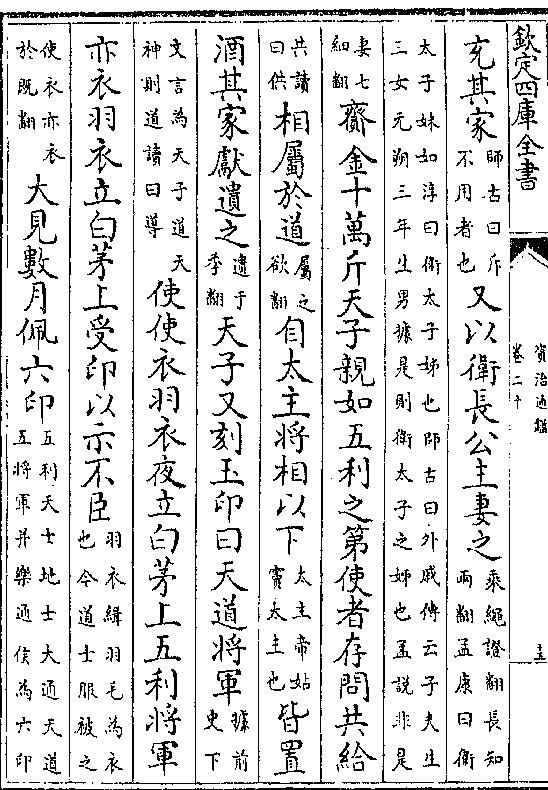 欽定四庫全書
資治通鑑
卷二十
十五
充其家師古曰斥不用者也又以衛長公主妻之乘繩證翻長知兩翻孟康曰衛
太子妹如淳曰衛太子姊也師古曰外戚傳云子夫生三女元朔三年生男據是則衛太子之姊也孟說非是
妻七細翻齎金十萬斤天子親如五利之第使者存問共給
共讀曰供相屬於道屬之欲翻自太主將相以下太主帝姑竇太主也皆置
酒其家獻遺之遺于季翻天子又刻玉印曰天道將軍據前史下
文言為天子道天神則道讀曰導使使衣羽衣夜立白茅上五利將軍
亦衣羽衣立白茅上受印以示不臣羽衣緝羽毛為衣也今道士服被之
使衣亦衣於既翻大見數月佩六印五利天士地士大通天道五將軍并樂通侯為六印